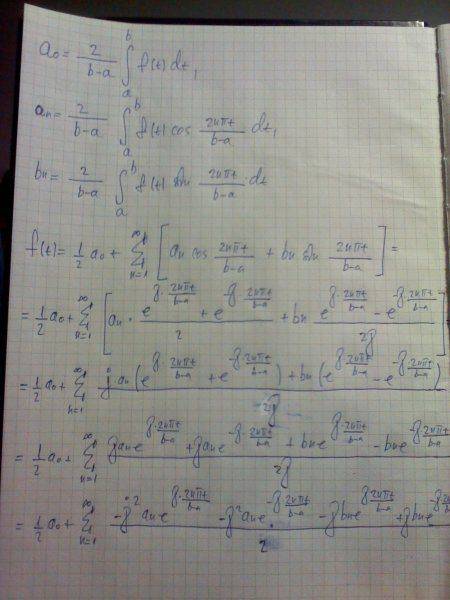 a₀ = 2/(b-a) ∫ₐᵇ f(t) dt,
aₙ = 2/(b-a) ∫ₐᵇ f(t) cos 2nπt/(b-a) dt,
bₙ = 2/(b-a) ∫ₐᵇ f(t) sin 2nπt/(b-a) dt
f(t) = 1/2 a₀ + ∑ₙ₌₁^∞ [aₙ cos 2nπt/(b-a) + bₙ sin 2nπt/(b-a)] =
= 1/2 a₀ + ∑ₙ₌₁^∞ [aₙ · (e^(j·2nπt/(b-a)) + e^(-j·2nπt/(b-a)))/2 + bₙ (e^(j·2nπt/(b-a)) - e^(-j·2nπt/(b-a)))/2j]
= 1/2 a₀ + ∑ₙ₌₁^∞ (j aₙ (e^(j·2nπt/(b-a)) + e^(-j·2nπt/(b-a))) + bₙ (e^(j·2nπt/(b-a)) - e^(-j·2nπt/(b-a))))/2j
= 1/2 a₀ + ∑ₙ₌₁^∞ (jaₙe^(j·2nπt/(b-a)) + jaₙe^(-j·2nπt/(b-a)) + bₙe^(j·2nπt/(b-a)) - bₙe^(-j·2nπt/(b-a)))/2j
= 1/2 a₀ + ∑ₙ₌₁^∞ (-j²aₙe^(j·2nπt/(b-a)) - j²aₙe^(-j·2nπt/(b-a)) - jbₙe^(j2nπt/(b-a)) + jbₙe^(-j2nπt/(b-a)))/2